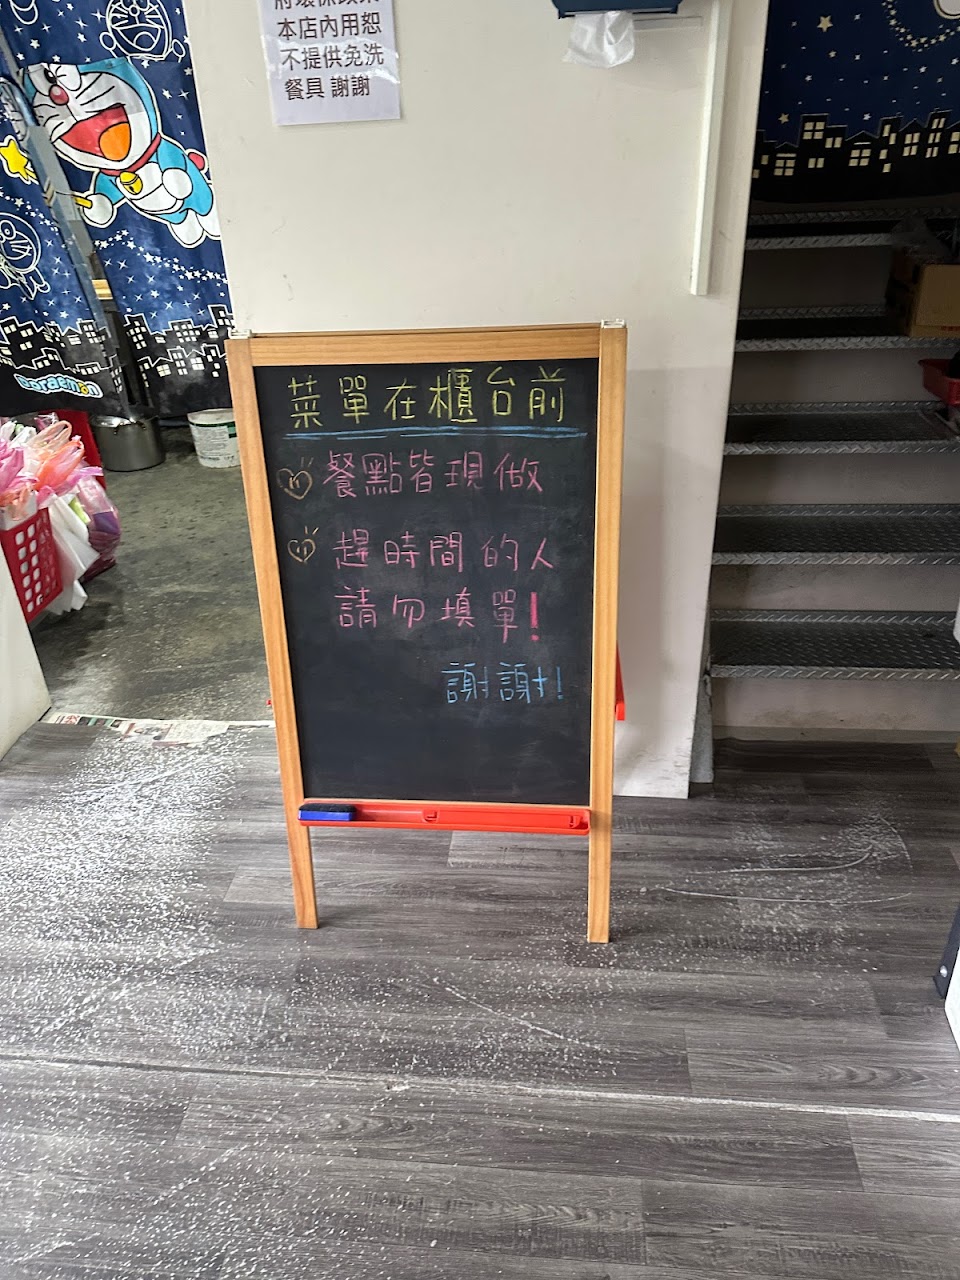 本店內用恕
不提供免洗
餐具 謝謝
doraemon
菜單在櫃台前
餐點皆現做
趕時間的人
請勿填單!
謝謝!